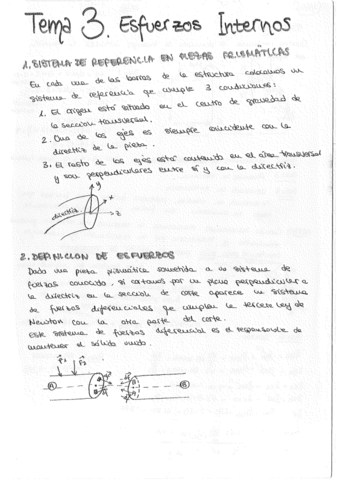 Tema 3. Esfuerzos Internos
1. SISTEMA DE REFERENCIA EN PIEZAS PRISMÁTICAS
En cada una de las barras de la estructura colocamos un
sistema de referencia que cumple 3 condiciones:
1. El origen está situado en el centro de gravedad de
la sección transversal.
2. Uno de los ejes es siempre coincidente con la
directriz de la pieza.
3. El resto de los ejes está contenido en el área transversal
y son perpendiculares entre sí y con la directriz.
y
x
directriz
z
2. DEFINICION DE ESFUERZOS
Dada una pieza prismática sometida a un sistema de
fuerzas conocido, si cortamos por un plano perpendicular a
la directriz en la sección de corte aparece un sistema
de fuerzas diferenciales que cumplen la tercera Ley de
Newton con la otra parte del corte.
Este sistema de fuerzas diferencial es el responsable de
mantener el sólido unido.
F1 F2
A
B